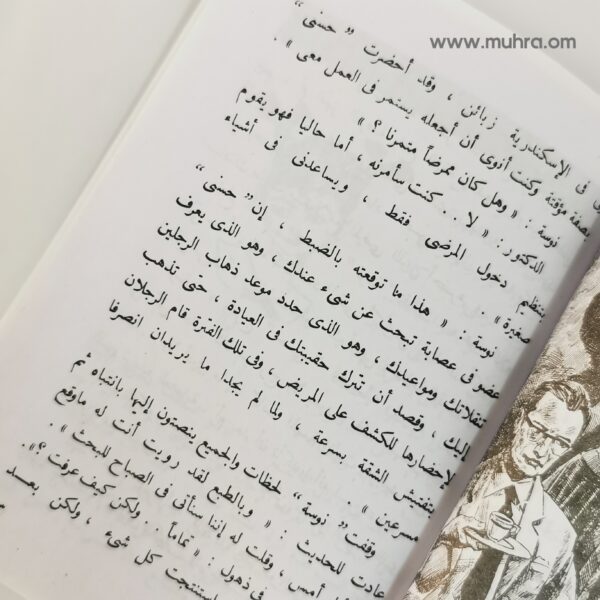 www.muhra.om
فى الإسكندرية زبائن ، وقد أحضرت « حسنى »
بصفة مؤقتة وكنت أنوى أن أجعله يستمر فى العمل معى » .
نوسة : « وهل كان ممرضاً متمرنا ؟ »
الدكتور : « لا . . كنت سأمرنه ، أما حاليا فهو يقوم
بتنظيم دخول المرضى فقط ، ويساعدنى فى أشياء
صغيرة » .
نوسة : « هذا ما توقعته بالضبط ، إن « حسنى »
عضو فى عصابة تبحث عن شىء عندك ، وهو الذى يعرف
تنقلاتك ومواعيدك ، وهو الذى حدد موعد ذهاب الرجلين
إليك ، وقصد أن تترك حقيبتك فى العيادة ، حتى تذهب
لإحضارها للكشف على المريض ، وفى تلك الفترة قام الرجلان
بتفتيش الشقة بسرعة ، ولما لم يجدا ما يريدان انصرفا
مسرعين » .
وقفت « نوسة » لحظات والجميع ينصتون إليها بانتباه ثم
عادت للحديث : « وبالطبع لقد رويت أنت له ماوقع
أمس ، وقلت له إننا سنأتى فى الصباح للبحث » .
فى ذهول : « تماماً . . ولكن كيف عرفت ؟ » .
استنتجت كل شىء ، ولكن بعد